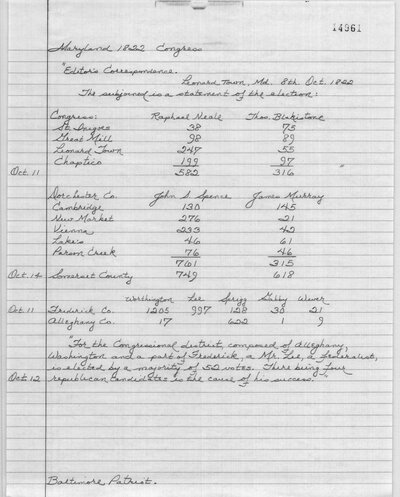 14961
Maryland 1822 Congress
"Editor's Correspondence.
Leonard Town, Md. 8th. Oct. 1822
The subjoined is a statement of the election:
Congress: Raphael Neale Thos. Blakistone
St. Inegoes 38 75
Great Mill 98 89
Leonard Town 247 55
Chaptico 199 97
Oct. 11 582 316 "
Dorchester Co. John S Spence James Murray
Cambridge 130 145
New Market 276 21
Vienna 233 42
Lake's 46 61
Parson Creek 76 46
761 315
Oct. 14 Somerset County 749 618
Worthington Lee Sprigg Gabby Wever
Oct. 11 Frederick Co. 1205 997 128 30 21
Alleghany Co. 17 622 1 9
"For the Congressional district, composed of Alleghany,
Washington and a part of Frederick, a Mr. Lee, a federalist,
is elected by a majority of 52 votes. There being four
Oct. 12 republican candidates is the cause of his success."
Baltimore Patriot.